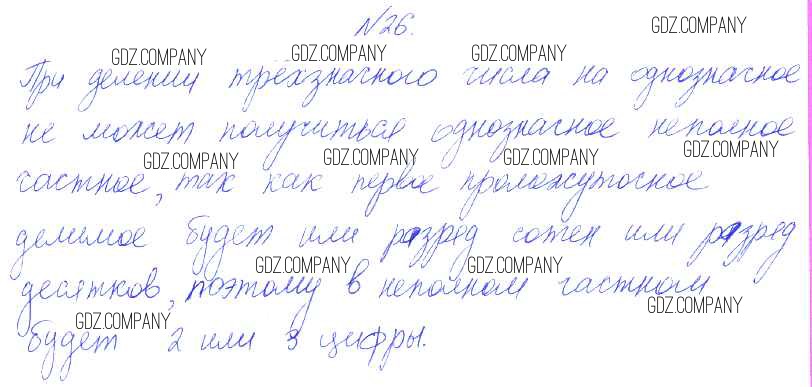 №26.
GDZ.COMPANY
GDZ.COMPANY GDZ.COMPANY GDZ.COMPANY
При делении трёхзначного числа на однозначное
не может получиться однозначное неполное
GDZ.COMPANY GDZ.COMPANY GDZ.COMPANY GDZ.COMPANY
частное, так как первое промежуточное
делимое будет или разряд сотен или разряд
GDZ.COMPANY GDZ.COMPANY
десятков, поэтому в неполном частном
GDZ.COMPANY GDZ.COMPANY
будет 2 или 3 цифры.